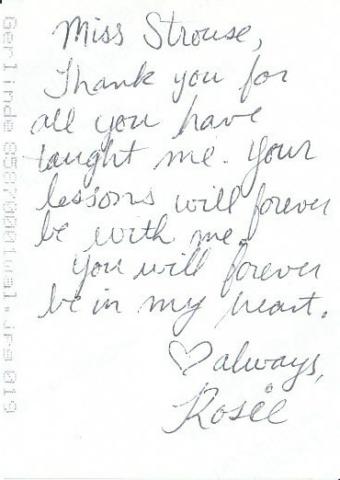 Miss Strouse,
Thank you for
all you have
taught me. Your
lessons will forever
be with me.
You will forever
be in my heart.
♡ always,
Rosëe